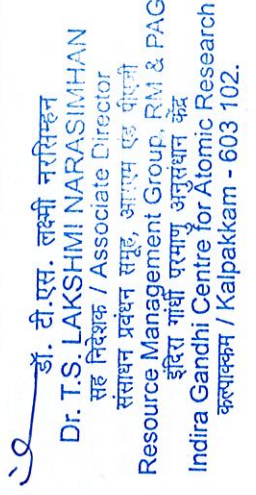 डॉ. टी.एस. लक्ष्मी नरसिम्हन
Dr. T.S. LAKSHMI NARASIMHAN
सह निदेशक / Associate Director
संसाधन प्रबंधन समूह, आरएम एंड पीएजी
Resource Management Group, RM & PAG
इंदिरा गांधी परमाणु अनुसंधान केंद्र
Indira Gandhi Centre for Atomic Research
कल्पाक्कम / Kalpakkam - 603 102.